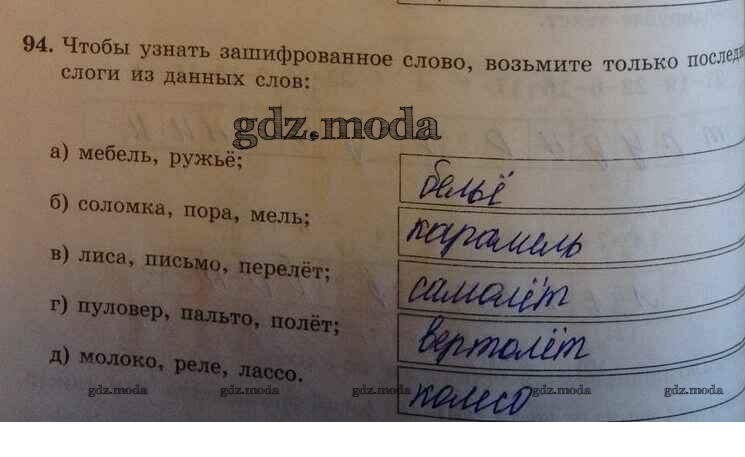 94. Чтобы узнать зашифрованное слово, возьмите только последн
слоги из данных слов:
gdz.moda
а) мебель, ружьё;
бельё
б) соломка, пора, мель;
карамель
в) лиса, письмо, перелёт;
самолёт
г) пуловер, пальто, полёт;
вертолёт
д) молоко, реле, лассо.
колесо
gdz.moda gdz.moda gdz.moda gdz.moda gdz.moda